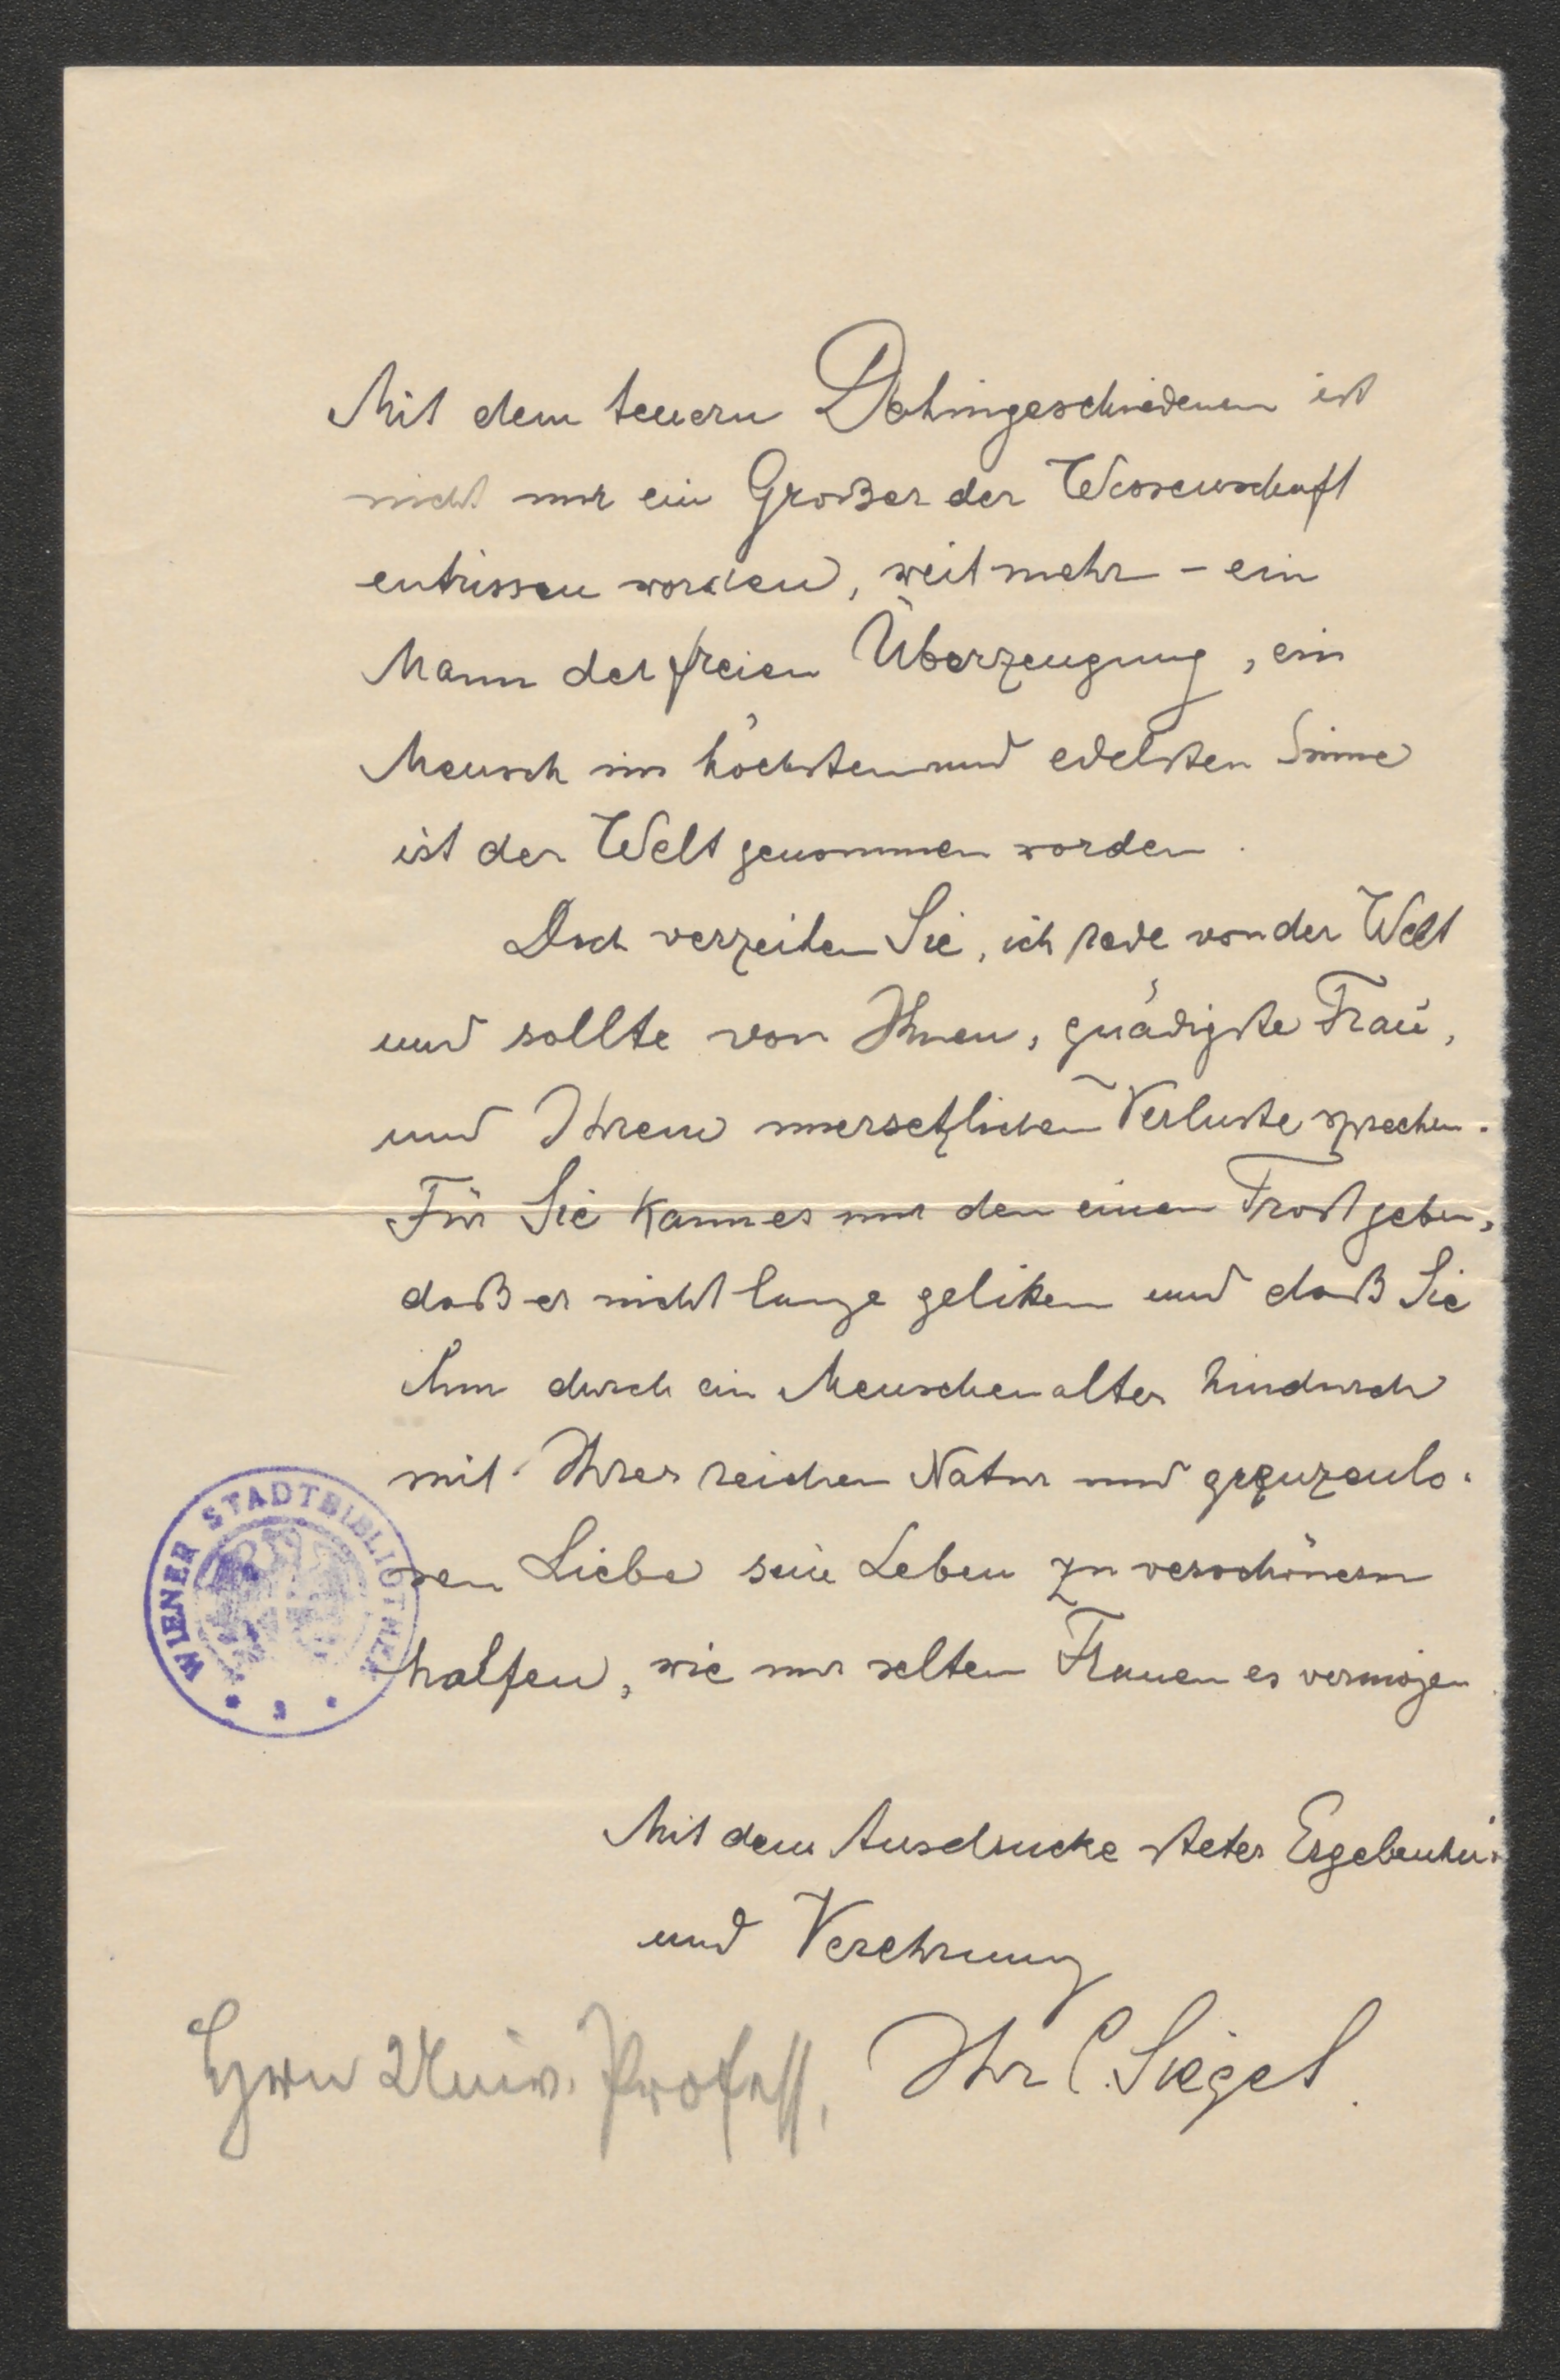 Mit dem teuern Dahingeschiedenen ist
nicht nur ein Großer der Wissenschaft
entrissen worden, weit mehr - ein
Mann der freien Überzeugung, ein
Mensch im höchsten und edelsten Sinne
ist der Welt genommen worden.
Doch verzeihen Sie, ich rede von der Welt
und sollte von Ihnen, gnädigste Frau,
und Ihrem unersetzlichen Verluste sprechen.
Für Sie kann es nur den einen Trost geben,
daß er nicht lange gelitten und daß Sie
ihm durch ein Menschenalter hindurch
mit Ihrer reichen Natur und grenzenlo-
sen Liebe sein Leben zu verschönern
halfen, wie nur selten Frauen es vermögen.
WIENER STADTBIBLIOTHEK
* 3 *
Mit dem Ausdrucke steter Ergebenhei
und Verehrung
Ihr C. Siegel.
Univ. Profess.